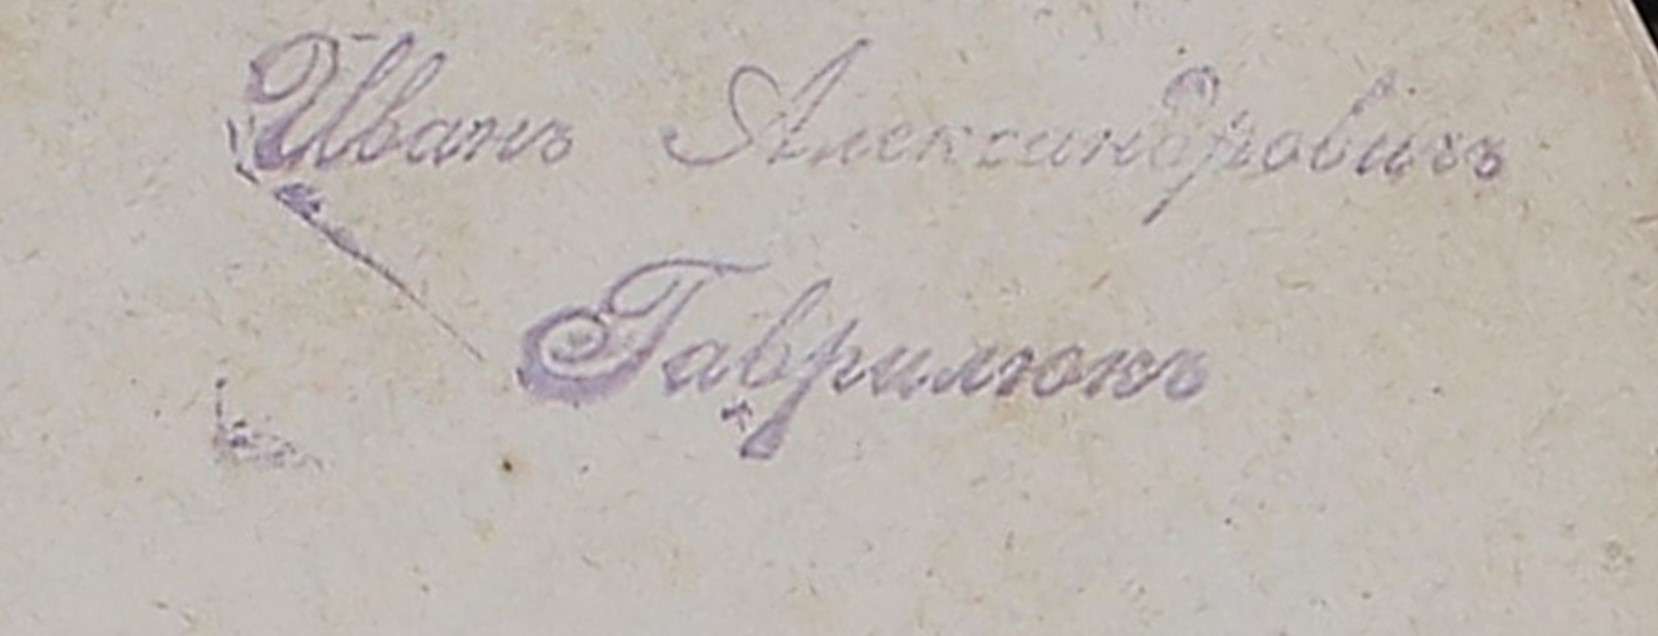 Иванъ Александровичъ
Гаврилюкъ